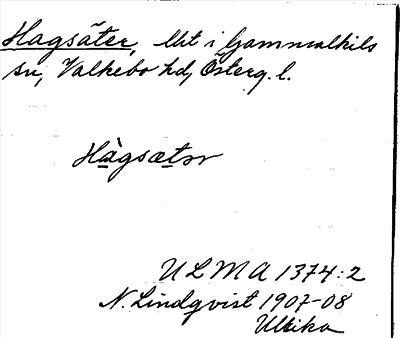 Hagsäter, lht i Gammalkils
sn, Valkebo hd, Österg. l.
Hàgsætər
ULMA 1374:2
N. Lindqvist 1907-08
Ullika